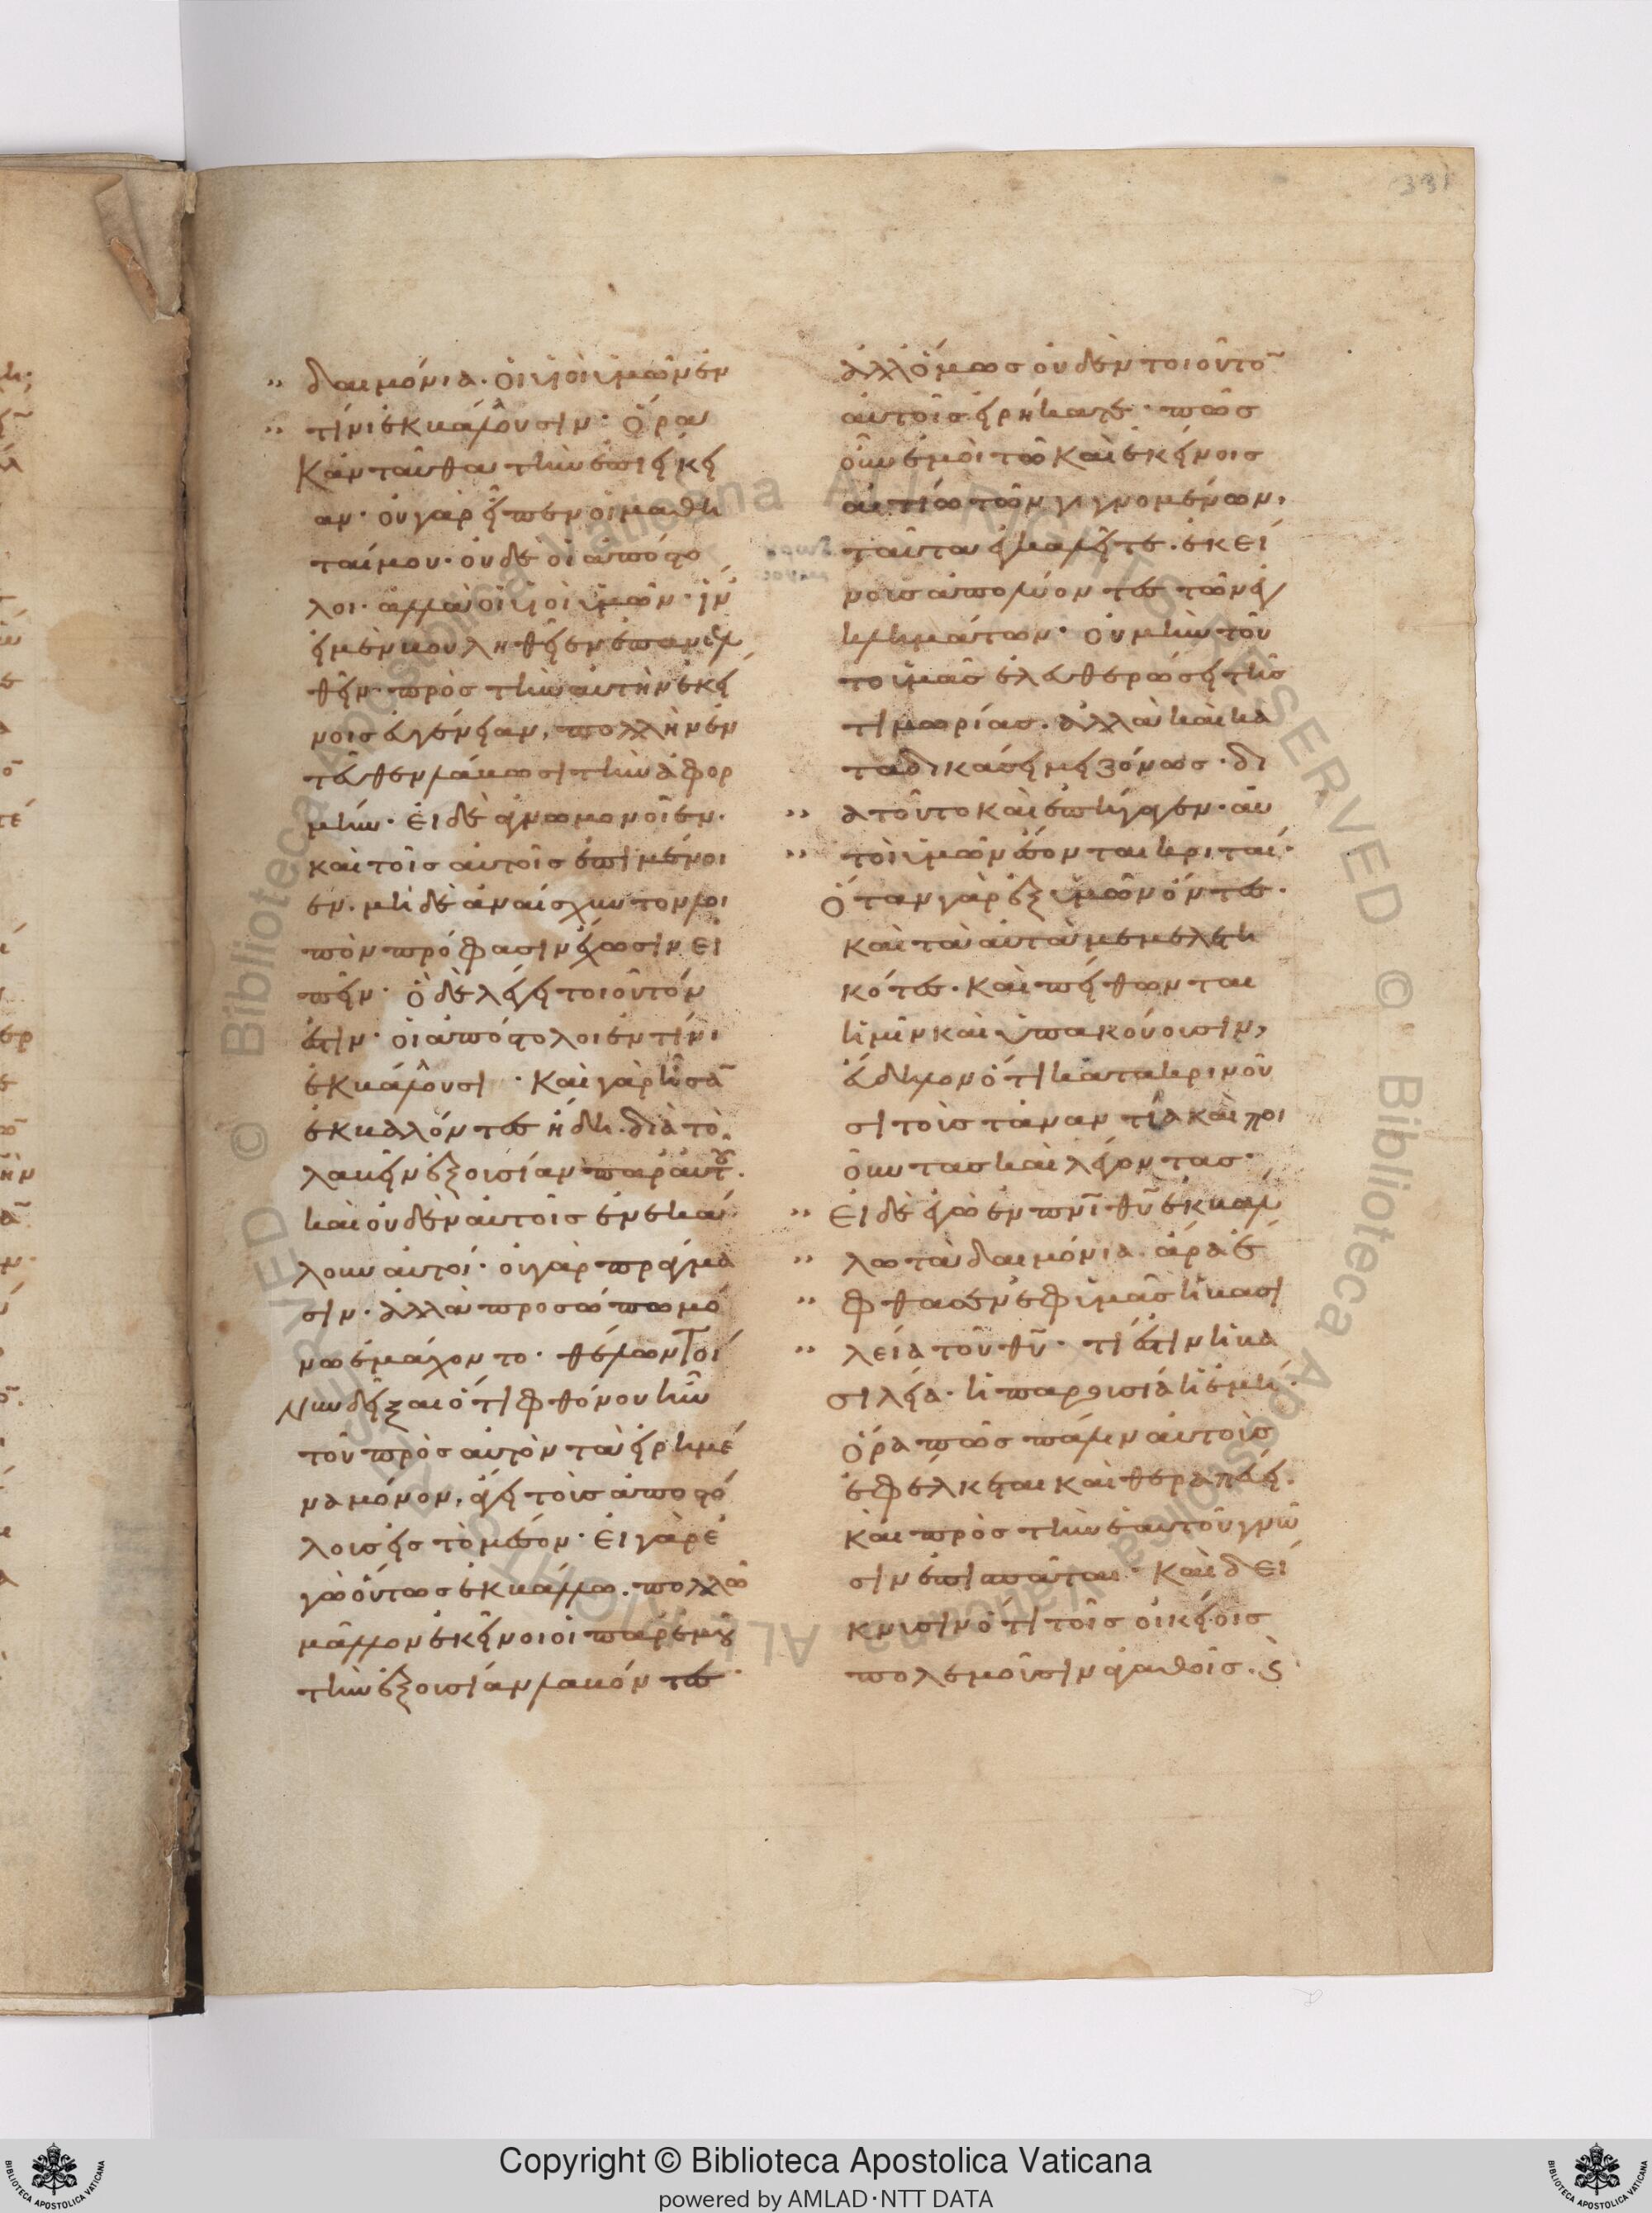 331
δαιμόνια· οἱ υἱοὶ ὑμῶν ἐν
τίνι ἐκβάλλουσιν· Ὅρα
κἀνταῦθα τὴν ἐπιείκει
αν· οὐ γὰρ εἶπεν οἱ μαθη
ταί μου· οὐδὲ οἱ ἀπόστο
λοι· ἀλλὰ οἱ υἱοὶ ὑμῶν· ἵν
εἰ μὲν βουληθεῖεν ἐπανελ
θεῖν πρὸς τὴν αὐτὴν ἐκεί
νοις εὐγένειαν, πολλὴν ἐν
τεῦθεν λάβωσι τὴν ἀφορ
μήν· εἰ δὲ ἀγνωμονοῖεν·
καὶ τοῖς αὐτοῖς ἐπιμένοι
εν· μηδὲ ἀναίσχυντον λοι
πὸν πρόφασιν ἔχωσιν εἰ
πεῖν· ὃ δὲ λέγει τοιοῦτόν
ἐστιν· οἱ ἀπόστολοι ἐν τίνι
ἐκβάλλουσι· Καὶ γὰρ ἦσα̅
ἐκβαλόντες ἤδη· διὰ τὸ
λαβεῖν ἐξουσίαν παρ αὐτοῦ·
καὶ οὐδὲν αὐτοῖς ἐνεκά
λουν αὐτοί· οὐ γὰρ πράγμα
σιν· ἀλλὰ προσώπω μό
νω ἐμάχοντο· θέλων τοί
νυν δεῖξαι ὅτι φθόνου ἦν
τοῦ πρὸς αὐτὸν τὰ εἰρημέ
να μόνον, ἄγει τοὺς ἀποστό
λους εἰς τὸ μέσον· Εἰ γὰρ ἐ
γὼ οὕτως ἐκβάλλω· πολλῶ
μᾶλλον ἐκεῖνοι οἱ παρ ἐμοῦ
τὴν ἐξουσίαν λαβόντες·
ἀλλ ὅμως οὐδὲν τοιοῦτο̅
αὐτοῖς εἰρήκατε· πῶς
οὖν ἐμοὶ τῶ καὶ ἐκείνοις
αἰτίω τῶν γιγνομένων,
ταῦτα ἐγκαλεῖτε· ἐκεί
νους ἀπολύοντες τῶν ἐγ
κλημάτων· οὐ μὴν τοῦ
το ὑμᾶς ἐλευθερώσει τῆς
τιμωρίας· ἀλλὰ καὶ κα
ταδικάσει μειζόνως· δι
ὰ τοῦτο καὶ ἐπήγαγεν· αὐ
τοὶ ὑμῶν ἔσονται κριταί·
Ὅταν γὰρ ἐξ ὑμῶν ὄντες·
καὶ τὰ αὐτὰ μεμελετη
κότες· καὶ πείθωνται
ἡμῖν καὶ ὑπακούουσιν,
εὔδηλον ὅτι κατακρινοῦ
σι τοὺς τἀναντία καὶ ποι
οῦντας καὶ λέγοντας·
Εἰ δὲ ἐγὼ ἐν πν̅ι θυ̅ ἐκβάλ
λω τὰ δαιμόνια· ἄρα ἔ
φθασεν ἐφ ὑμᾶς ἡ βασι
λεία τοῦ θυ̅· τί ἐστιν ἡ βα
σιλεία· ἡ παρουσία ἡ ἐμή·
Ὅρα πῶς πάλιν αὐτοὺς
ἐφέλκεται καὶ θεραπεύει·
καὶ πρὸς τὴν ἑαυτοῦ γνῶ
σιν ἐπισπᾶται· Καὶ δεί
κνυσιν ὅτι τοῖς οἰκείοις
πολεμοῦσιν ἀγαθοῖς· ϛ